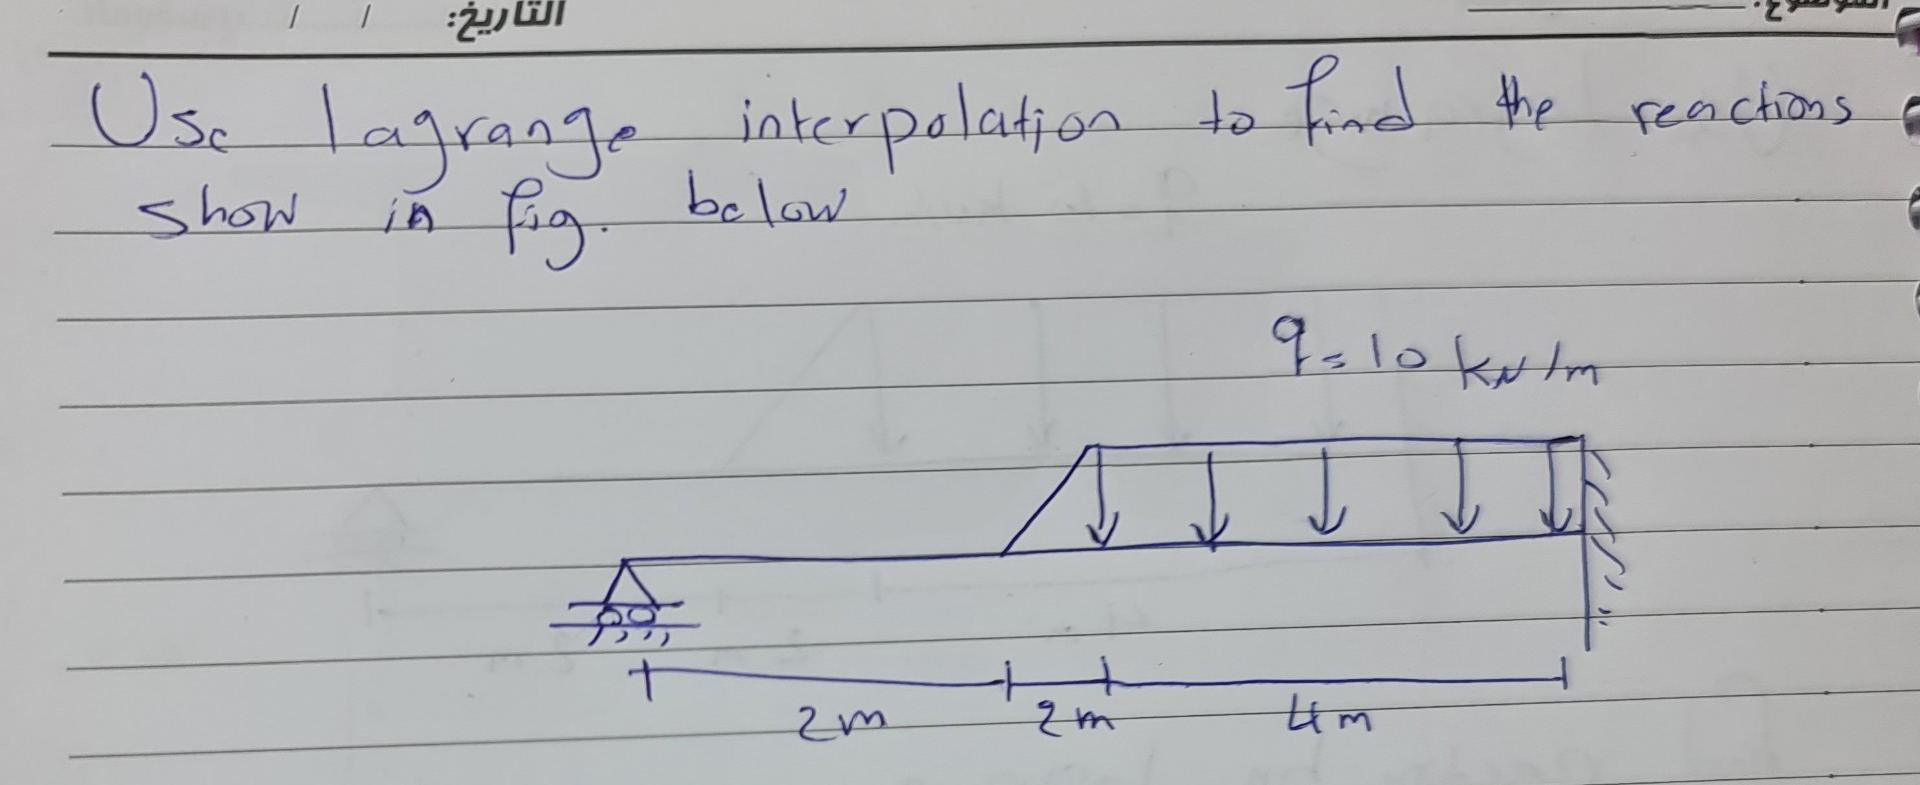 التاريخ: / /
الموضوع:
Use lagrange interpolation to find the reactions
show in fig. below
q=10 kN/m
2m 2m 4m